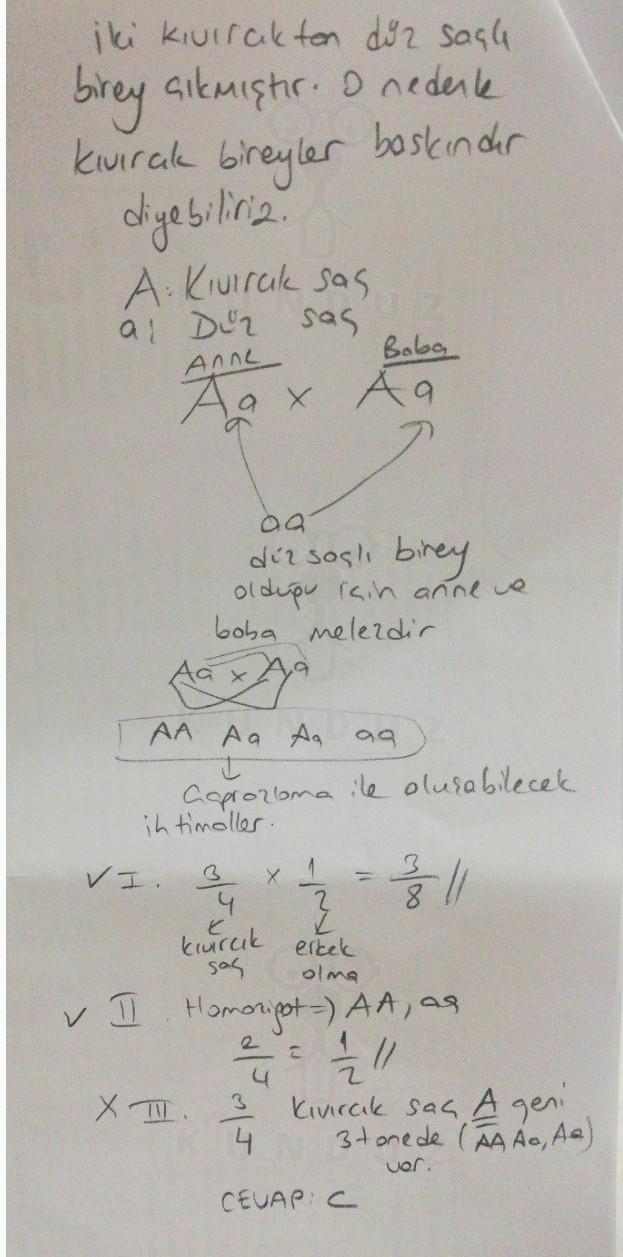 iki kıvırcıktan düz saçlı
birey çıkmıştır. O nedenle
kıvırcık bireyler baskındır
diyebiliriz.
A: Kıvırcık saç
a: Düz saç
Anne Baba
Aa x Aa
aa
düz saçlı birey
olduğu için anne ve
baba melezdir
Aa x Aa
AA Aa Aa aa
Çaprazlama ile oluşabilecek
ihtimaller.
√ I. 3/4 x 1/2 = 3/8 //
kıvırcık saç erkek olma
√ II. Homozigot => AA, aa
2/4 = 1/2 //
X III. 3/4 kıvırcık saç A geni
3 tanede (AA Aa, Aa)
var.
CEVAP: C
KUNDUZ
KUNDUZ
KUNDUZ